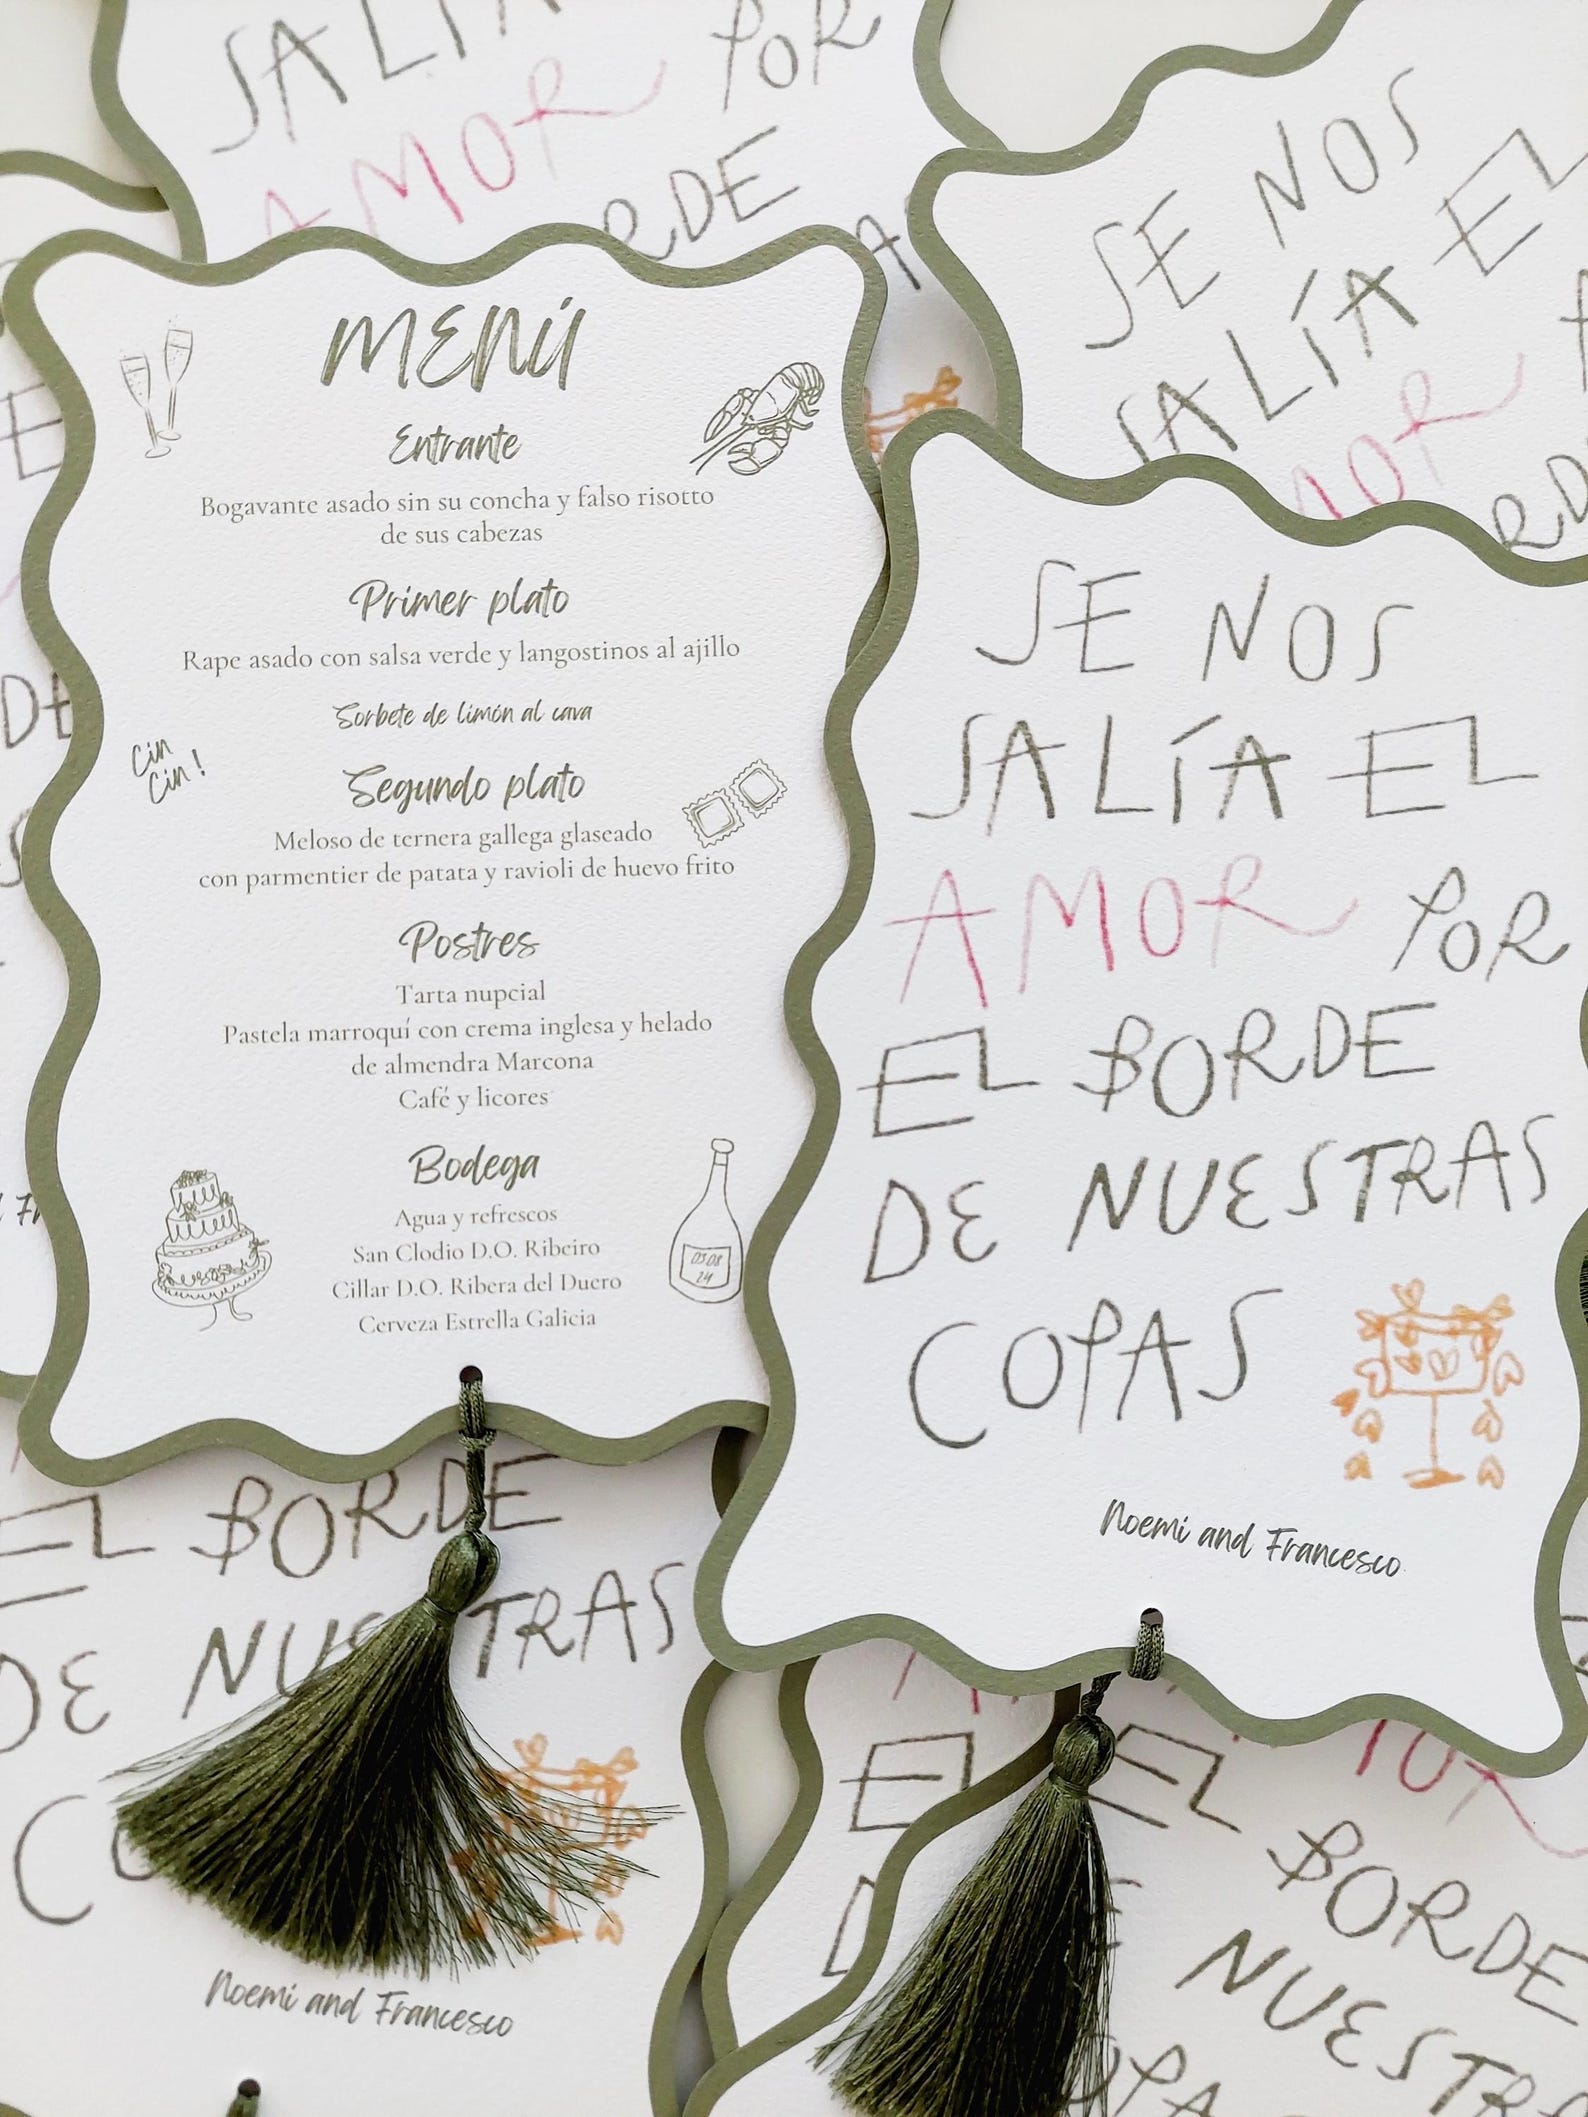 SALÍA
AMOR POR
BORDE
SE NOS
SALÍA EL
AMOR
BORDE
MENÚ
Entrante
Bogavante asado sin su concha y falso risotto
de sus cabezas
Primer plato
Rape asado con salsa verde y langostinos al ajillo
Sorbete de limón al cava
Cin
Cin!
Segundo plato
Meloso de ternera gallega glaseado
con parmentier de patata y ravioli de huevo frito
Postres
Tarta nupcial
Pastela marroquí con crema inglesa y helado
de almendra Marcona
Café y licores
Bodega
Agua y refrescos
San Clodio D.O. Ribeiro
Cillar D.O. Ribera del Duero
Cerveza Estrella Galicia
03 08
24
SE NOS
SALÍA EL
AMOR POR
EL BORDE
DE NUESTRAS
COPAS
Noemi and Francesco
EL BORDE
DE NUESTRAS
Noemi and Francesco
AMOR
EL BORDE
NUESTRAS
COPAS